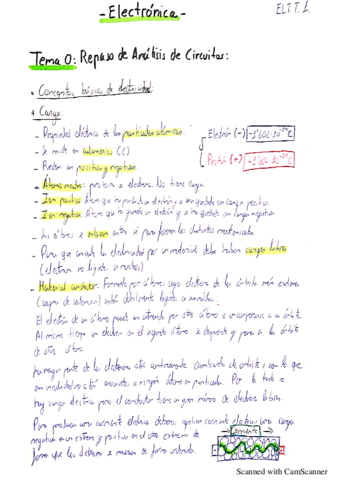 - Electrónica -
ELT.T.1
Tema 0: Repaso de Análisis de Circuitos:
• Conceptos básicos de electricidad:
+ Carga:
- Propiedad eléctrica de las partículas atómicas.
Electrón (-)
- Se mide en culombios (C)
Protón (+)
- Pueden ser positivas y negativas.
- Átomo neutro: protones = electrones. No tiene carga.
- Ion positivo: Átomo que ha perdido un electrón y se ha quedado con carga positiva.
- Ion negativo: Átomo que ha ganado un electrón y se ha quedado con carga negativa.
- Los átomos se enlazan entre sí para formar los distintos materiales.
- Para que circule la electricidad por un material debe haber cargas libres
(electrones no ligados a núcleos)
- Material conductor: Formado por átomos cuyos electrones de la órbita más externa
(capa de valencia) están débilmente ligados a
El electrón de un átomo puede ser atraído por otro átomo e incorporarse a su órbita.
Al mismo tiempo un electrón en el segundo átomo se desprende y pasa a la órbita
de otro átomo.
La mayor parte de los electrones está continuamente cambiando de órbita, con lo que
en realidad no está a ningún átomo en particular. Por lo tanto no
hay carga
para el conductor tiene un gran número de electrones libres.
Para producir una corriente eléctrica debemos
corriente
una carga
negativa en un extremo y positiva en el otro extremo de
forma que los electrones se muevan de forma ordenada.
Scanned with CamScanner